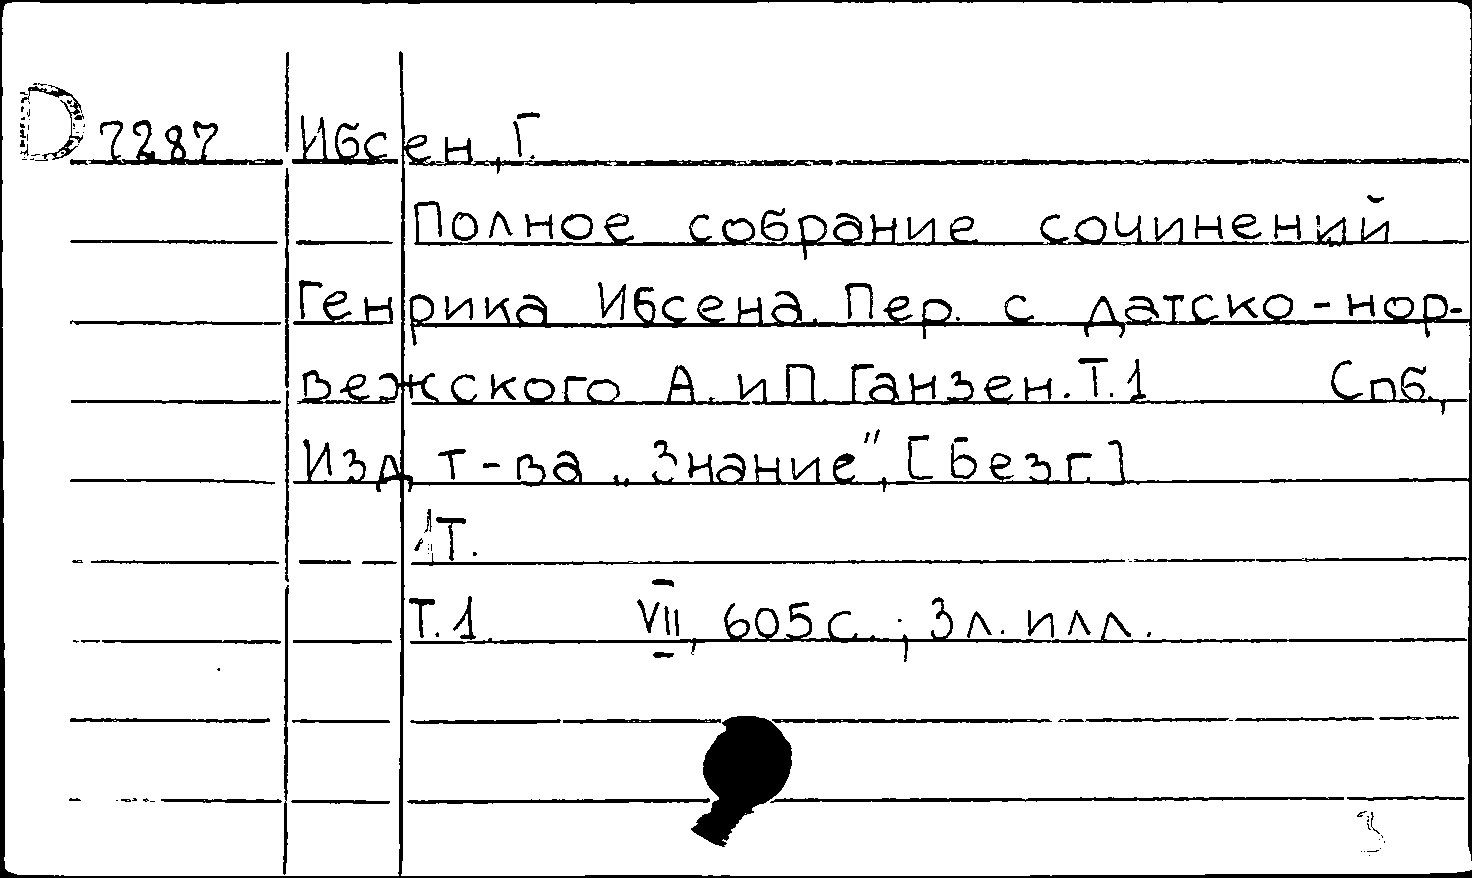 D 7287 Ибсен, Г.
Полное собрание сочинений
Генрика Ибсена. Пер. с датско-нор-
вежского А. и П. Ганзен. Т. 1 Спб.,
Изд. т-ва „Знание", [Без г.]
1 Т.
Т. 1. VII, 605 с.; 3 л. илл.
3